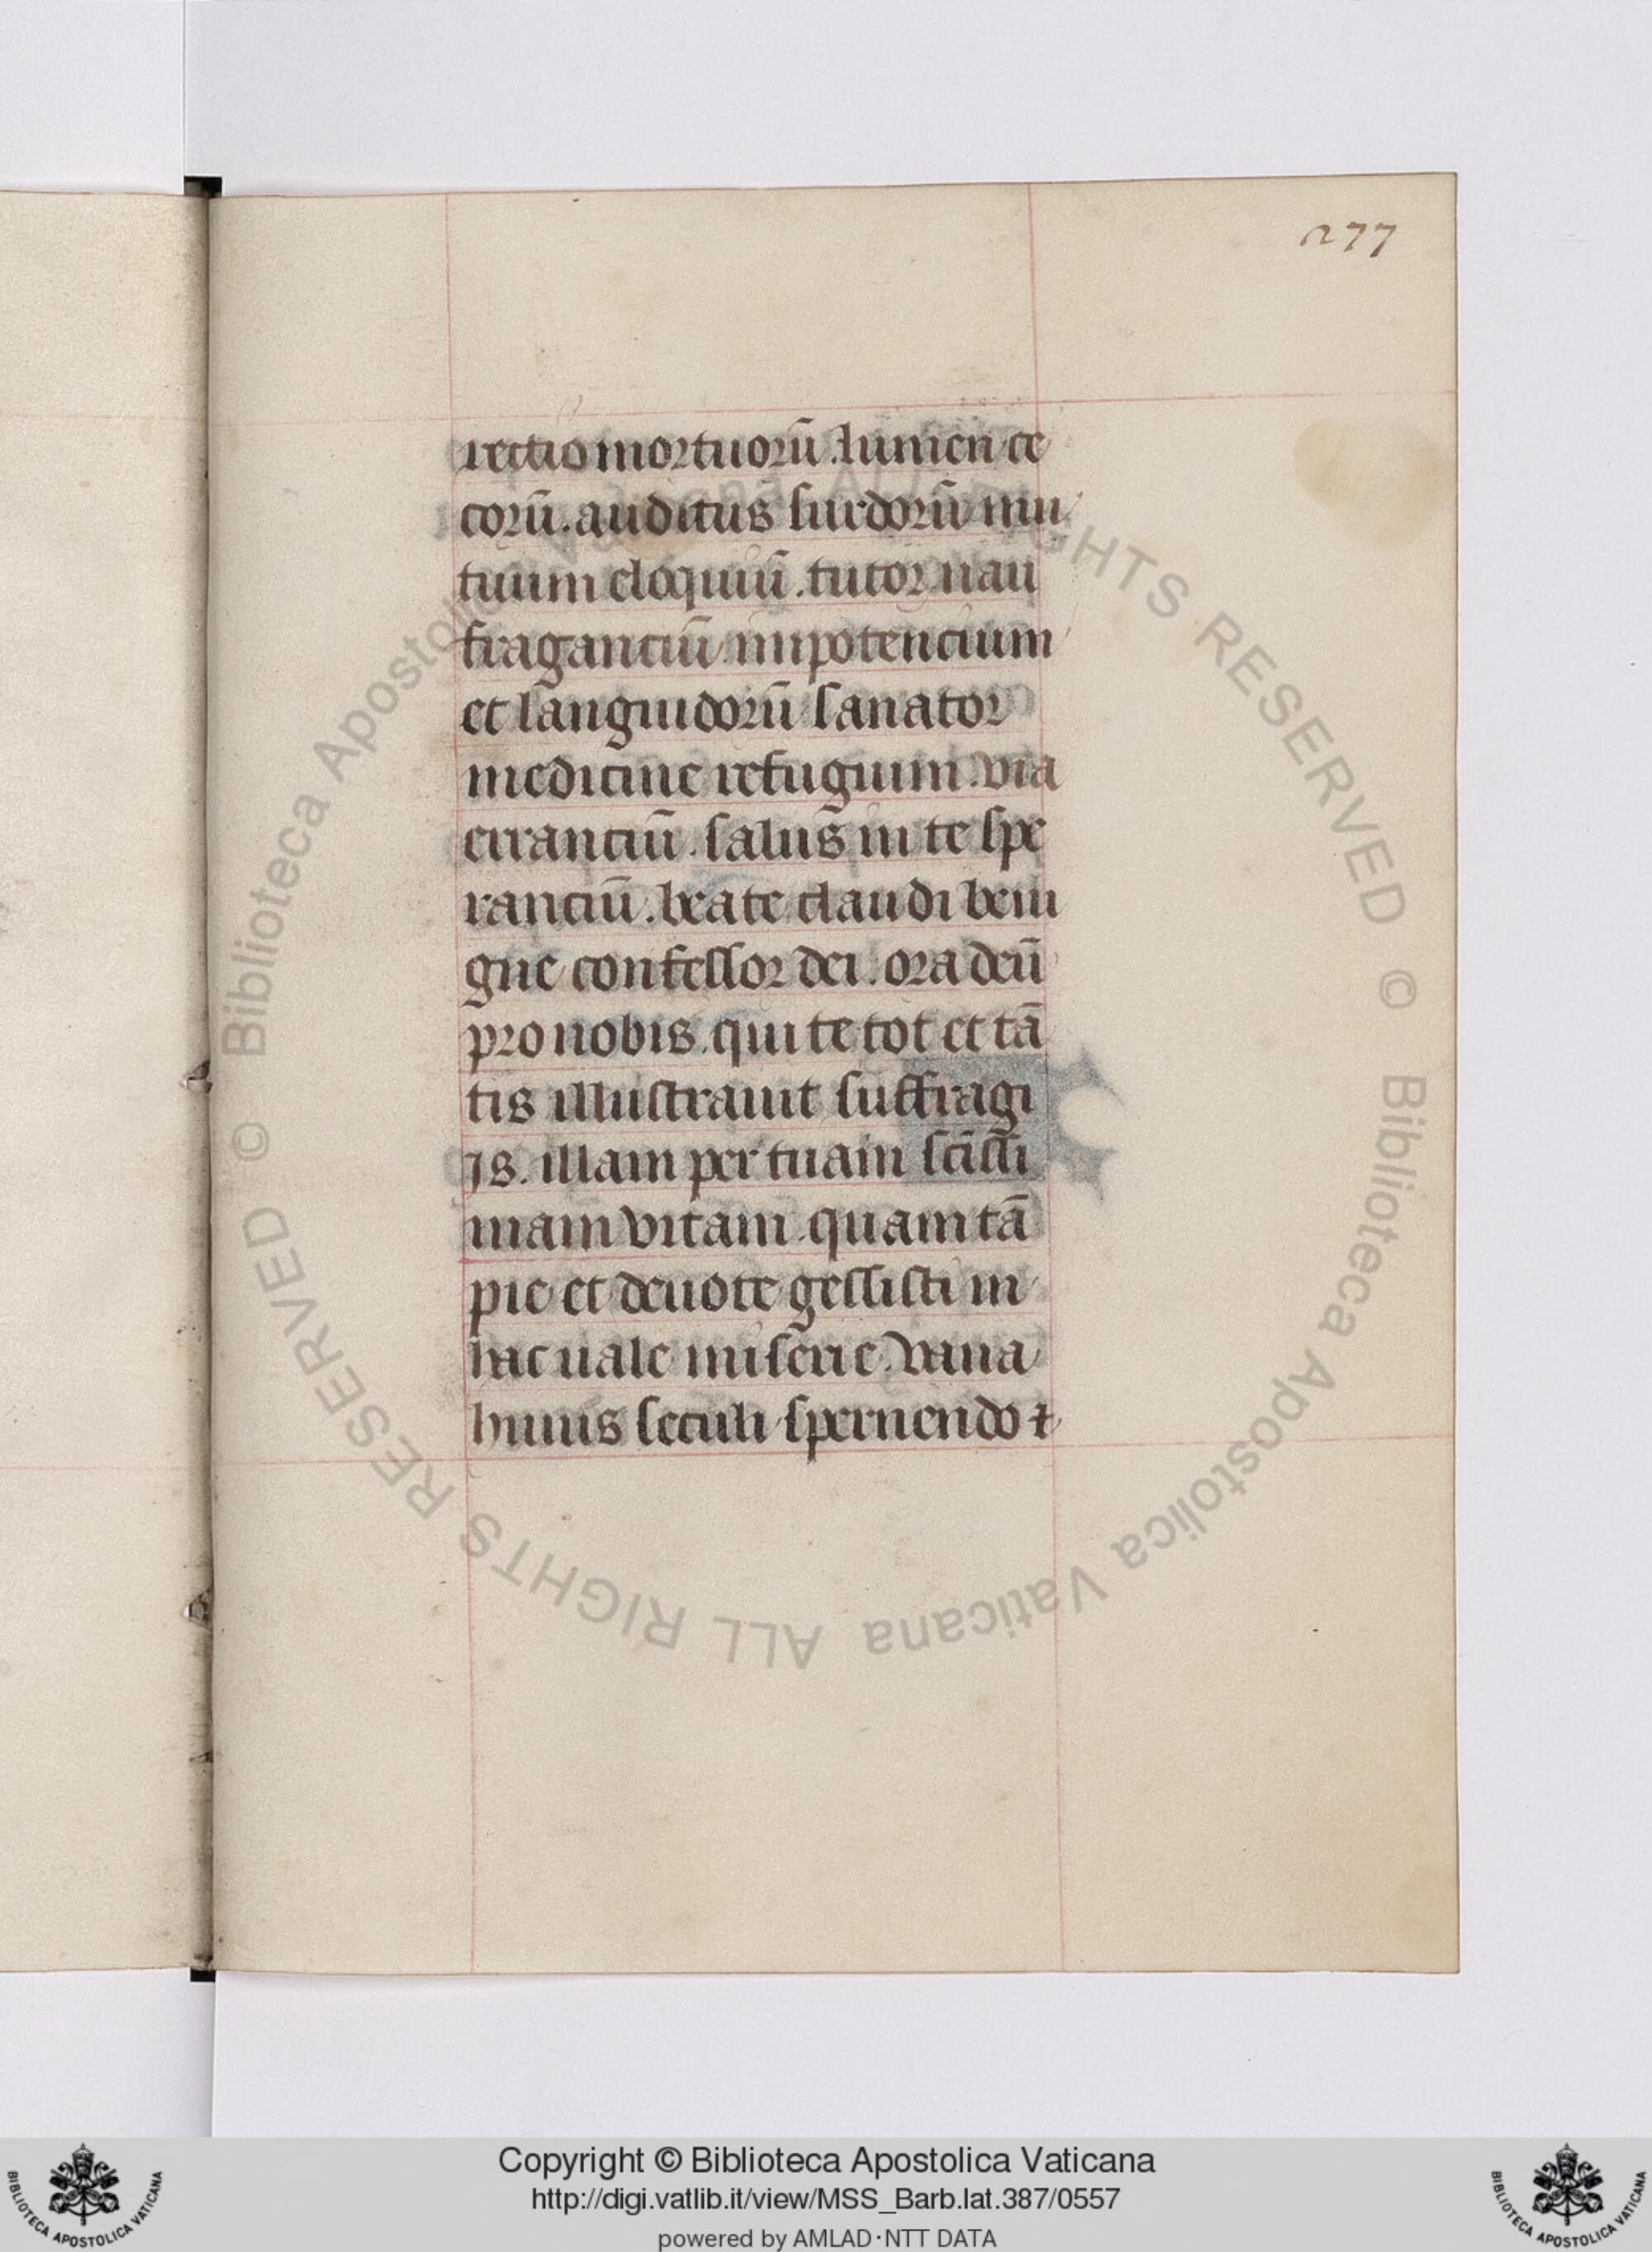 277
rectio mortuorū. lumen ce
corū. auditus surdorū mu
tuum eloquiū. tutor nau
fraganciū. impotencium
et languidorū sanator
medicine refugium. via
erranciū. salus in te spe
ranciū. beate claudi beni
gne confessor dei. ora deū
pro nobis. qui te tot et tā
tis illustrauit suffragi
js. illam per tuam scissi
mam vitam. quam tā
pie et deuote gessisti in
hac ualle miserie. vana
huius seculi spernendo ⁊
Copyright © Biblioteca Apostolica Vaticana
http://digi.vatlib.it/view/MSS_Barb.lat.387/0557
powered by AMLAD·NTT DATA
BIBLIOTECA APOSTOLICA VATICANA
BIBLIOTECA APOSTOLICA VATICANA
© Biblioteca Apostolica Vaticana ALL RIGHTS RESERVED
© Biblioteca Apostolica Vaticana ALL RIGHTS RESERVED